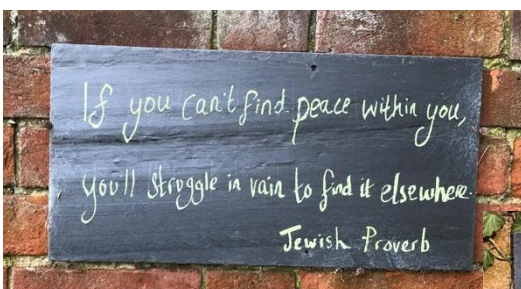 If you can't find peace within you,
you'll struggle in vain to find it elsewhere.
Jewish Proverb